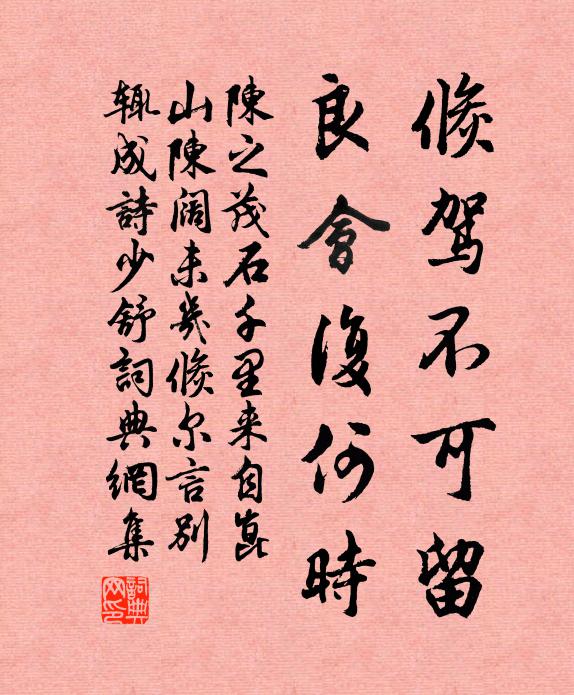 倏駕不可留
良會復何時
陳之茂石千里来自崑
山陳闊未幾倏尔言別
輒成詩少舒詞典網集
詞典网印